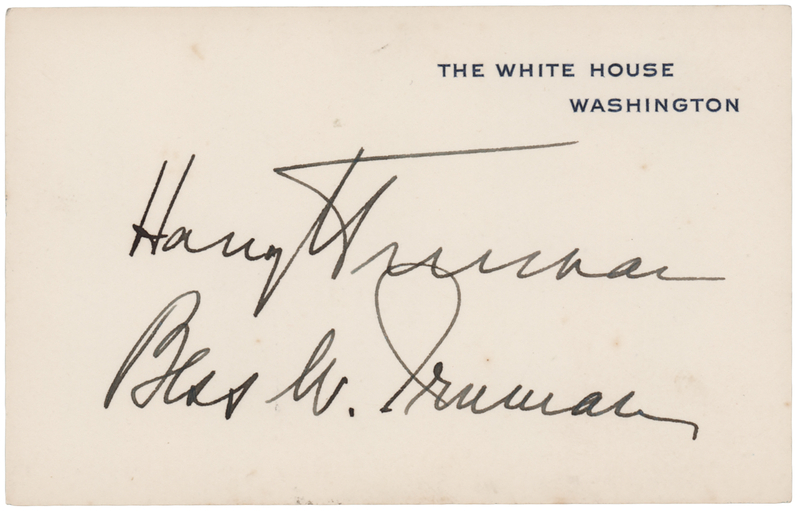 THE WHITE HOUSE
WASHINGTON
Harry S Truman
Bess W. Truman